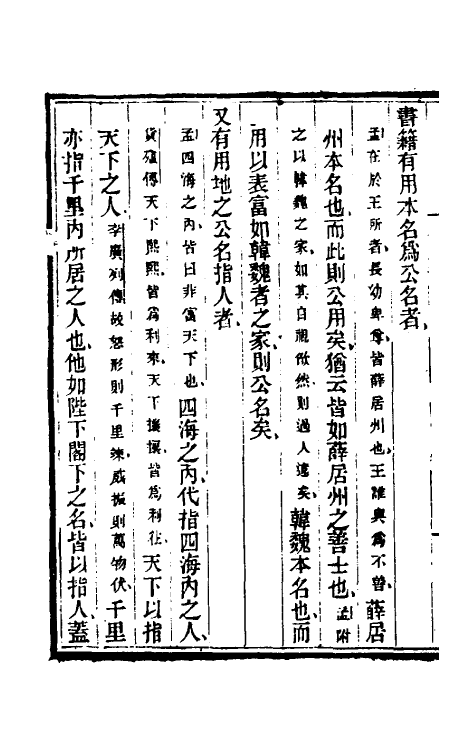 書籍有用本名爲公名者、
孟在於王所者、長幼卑尊、皆薛居州也、王誰與爲不善、薛居
州本名也、而此則公用矣、猶云皆如薛居州之善士也、孟附
之以韓魏之家、如其自視欿然、則過人遠矣、韓魏本名也、而
用以表富如韓魏者之家、則公名矣、
又有用地之公名指人者、
孟四海之內、皆曰非富天下也、四海之內、代指四海內之人、
貨殖傳天下熙熙、皆爲利來、天下攘攘、皆爲利往、天下以指
天下之人、李廣列傳故怒形則千里竦、威振則萬物伏、千里
亦指千里內所居之人也、他如陛下閣下之名、皆以指人、蓋